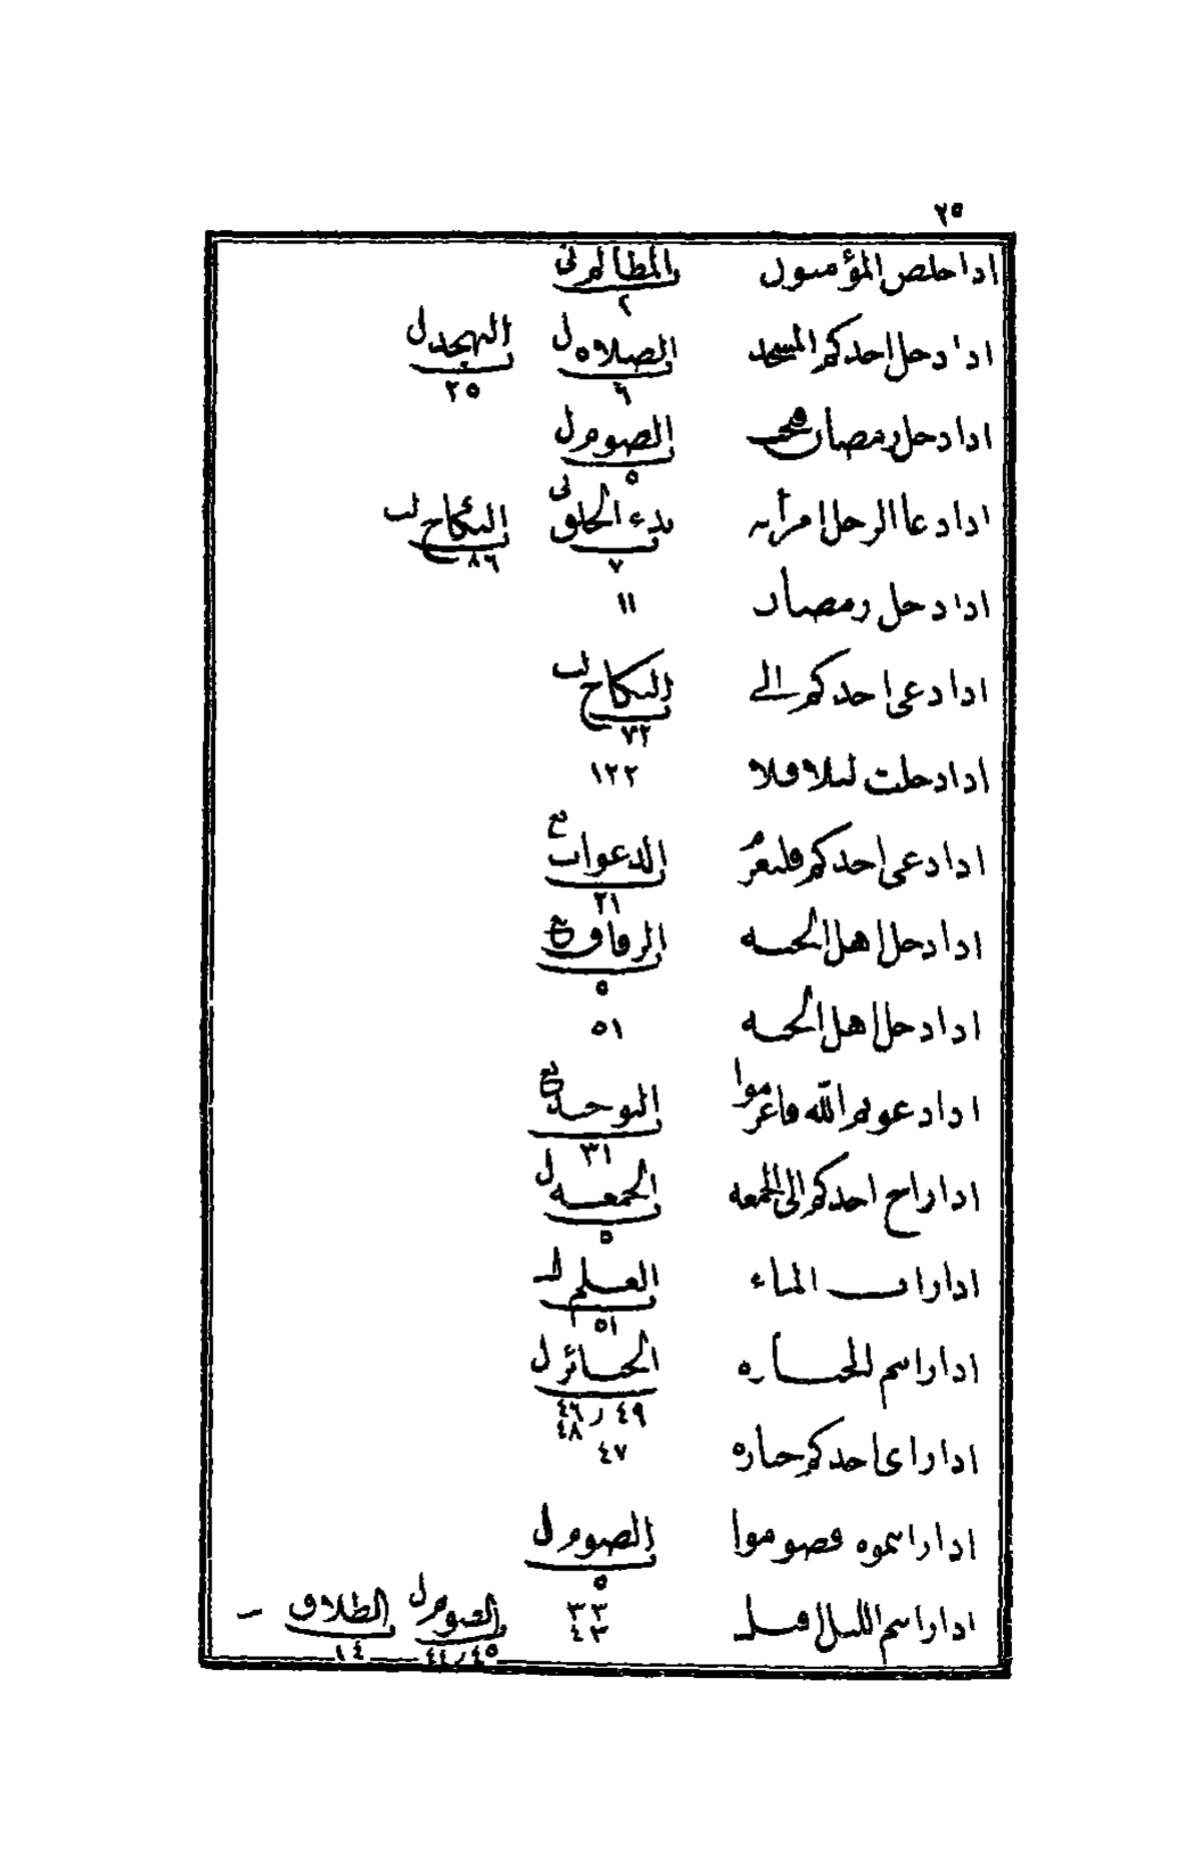 ٢٥
اداحلص المؤمىوں المطالم نى ٢
ادادحل احدكم المسجد الصلاه ل ٦ التهجد ل ٢٥
ادادحل رمضاں فتحت الصوم ل ٥
ادادعا الرحل امرأىه بدء الحلق نى ٧ النكاح لب ٨٦
ادادحل رمصاں ١١
ادادعى احدكم الى النكاح لب ٧٢
ادادحلت لىلا فلا ١٢٢
ادادعى احدكم فلىعزم الدعوات ىع ٢١
ادادحل اهل الحىه الرقاق ىع ٥
ادادحل اهل الحىه ٥١
ادادعوىم الله فاعزموا التوحىد ىع ٣١
اداراح احدكم الى الجمعه الجمعه ل ٥
ادارات الماء العلم ل ٥١
اداراىىم الحىاره الحىائز ل ٤٩ ر ٤٦ ٤٨
اداراى احدكم حىاره ٤٧
اداراىىموه فصوموا الصوم ل ٥
اداراىىم اللىل اقىل ٣٣ ٤٣ الصوم ل ٤٥ ر ٤٤ الطلاق ٢٤